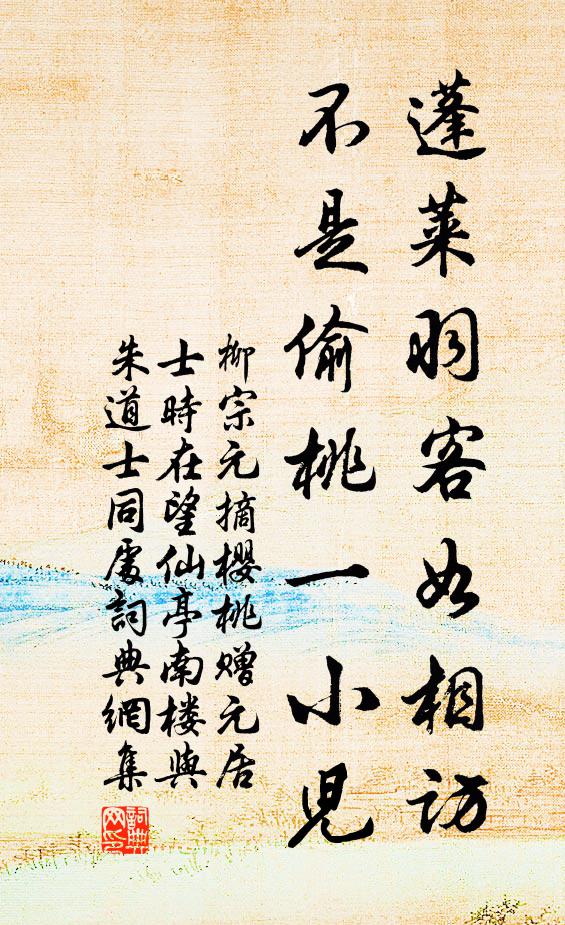 蓬莱羽客如相访
不是偷桃一小児
柳宗元摘樱桃赠元居
士時在望仙亭南楼與
朱道士同處詞典網集
詞典网印